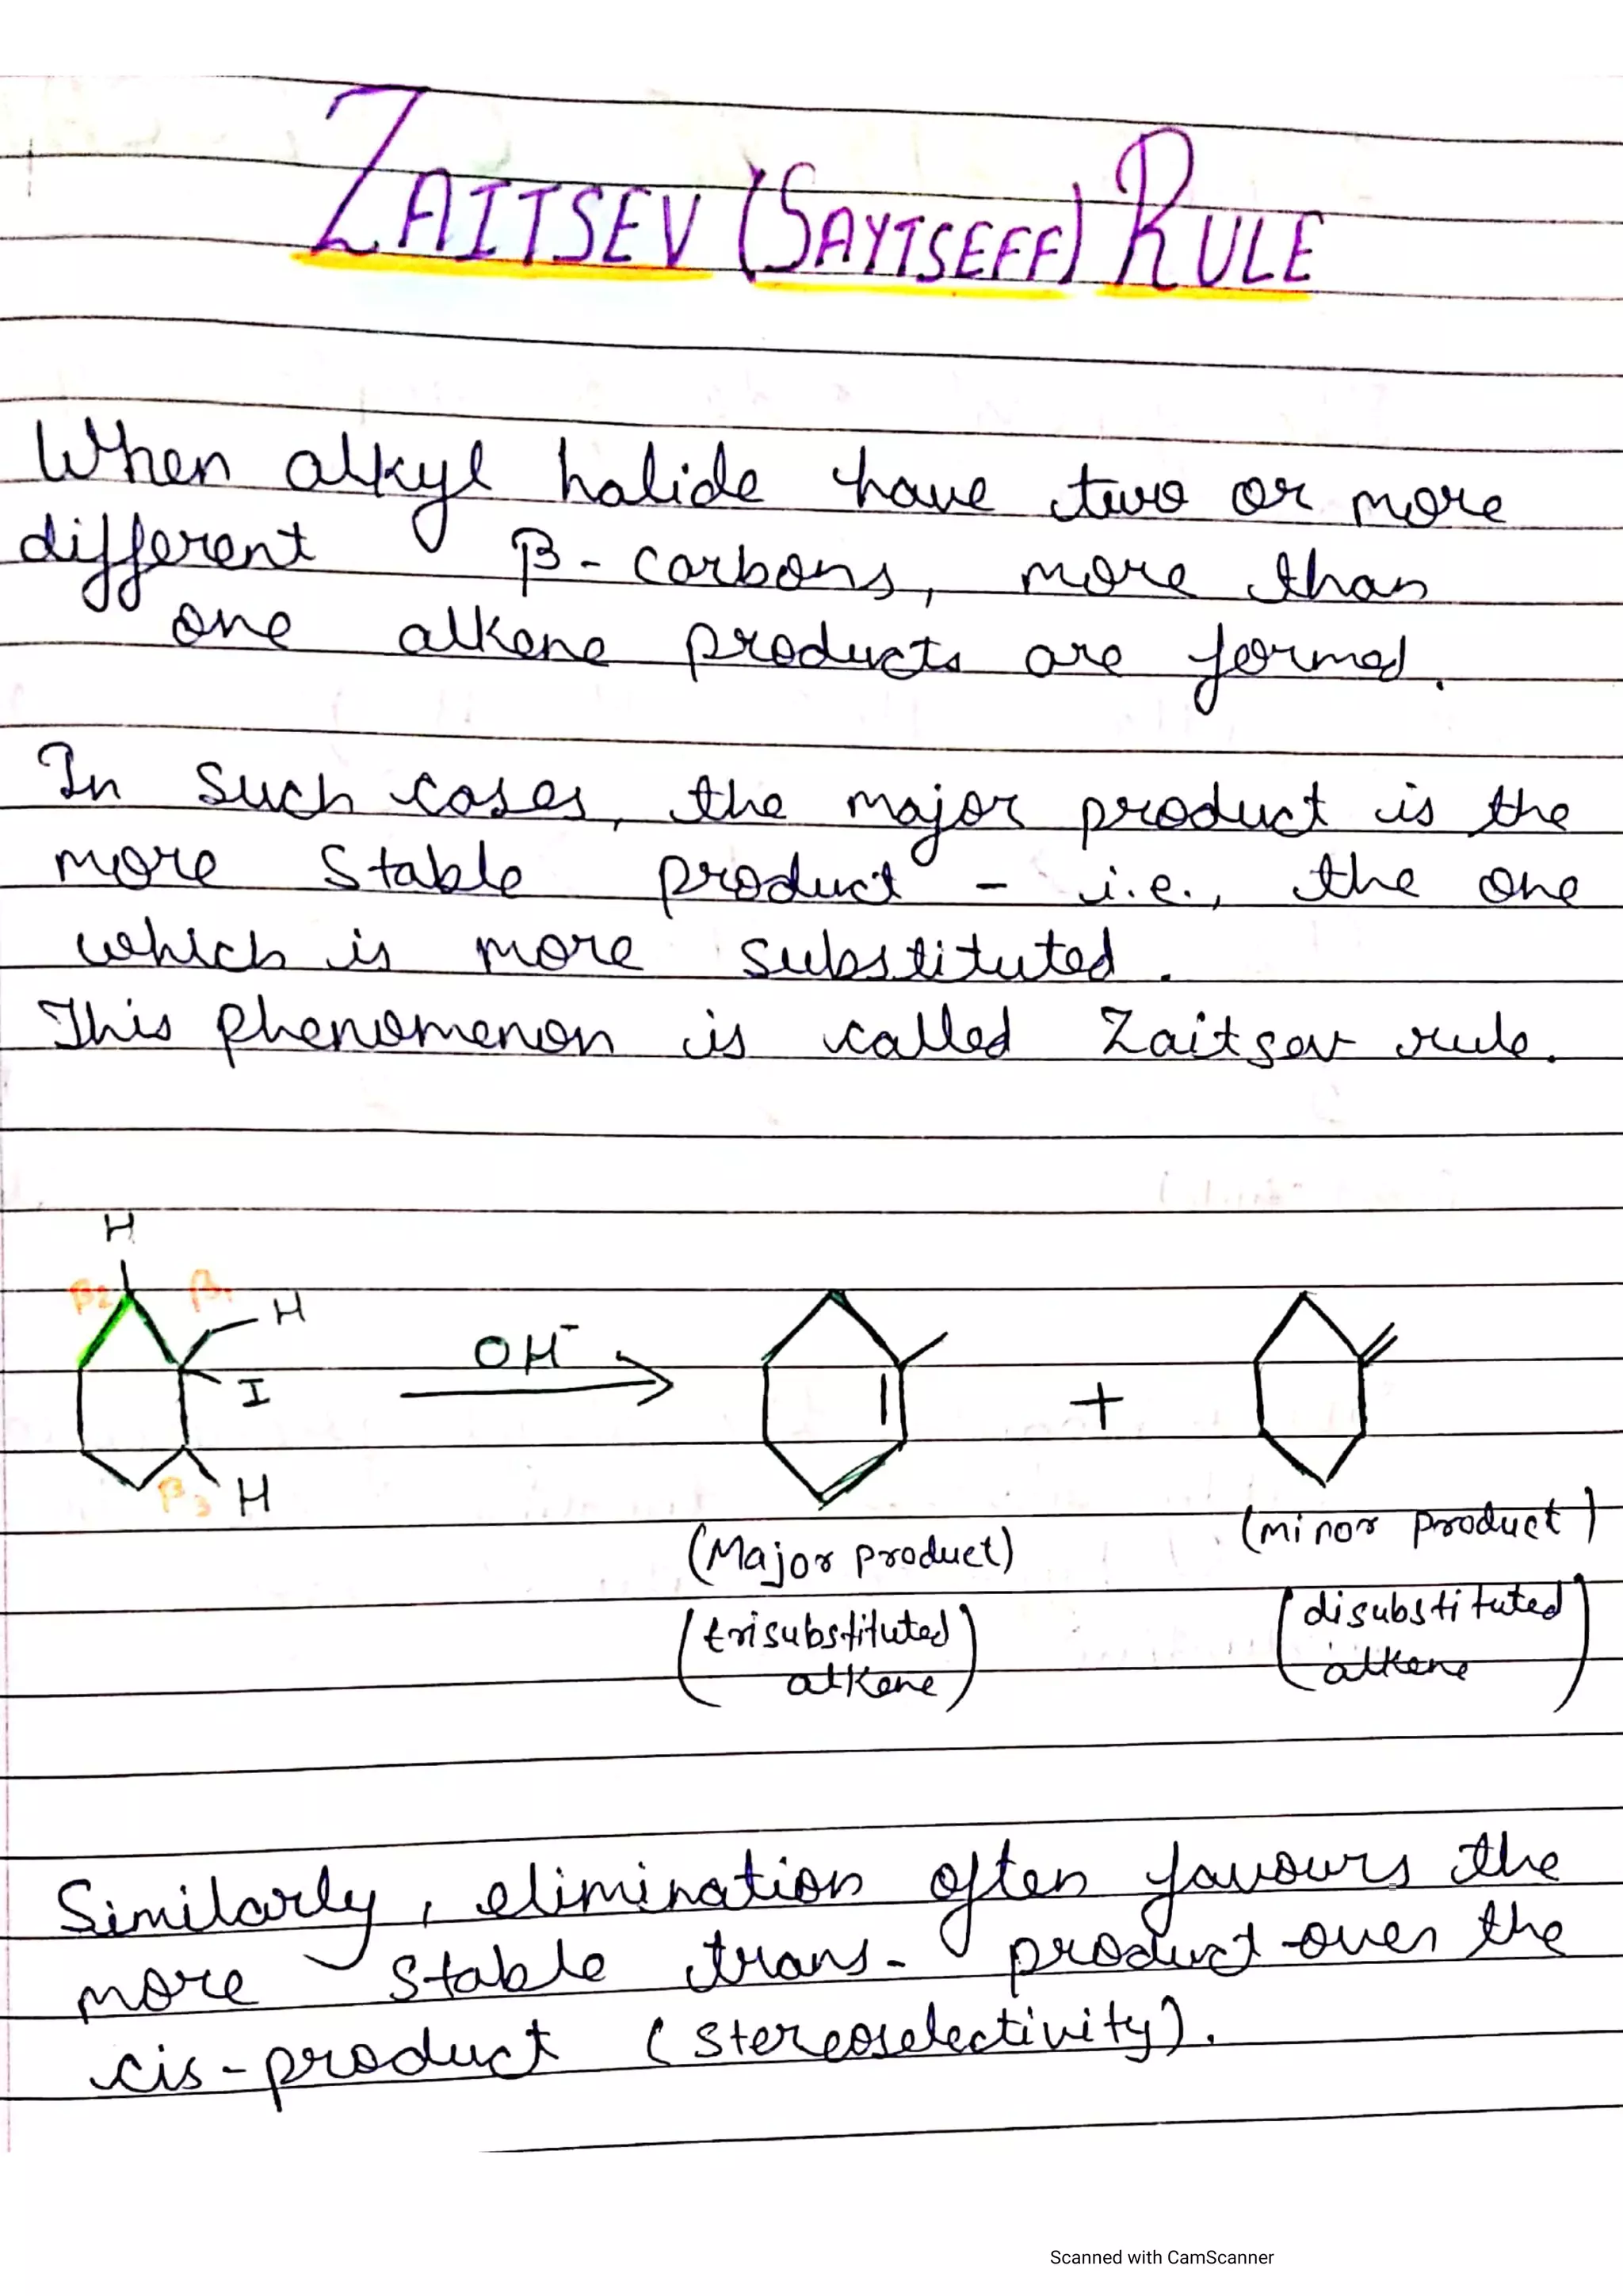 ZAITSEV (SAYTSEFF) RULE
When alkyl halide have two or more
different β- carbons, more than
one alkene products are formed.
In such cases, the major product is the
more stable product - i.e., the one
which is more substituted.
This phenomenon is called Zaitsev rule.
H
β2 β1 H
OH⁻
I
+
β3 H
(Major product) (minor product)
(trisubstituted alkene) (disubstituted alkene)
Similarly, elimination often favours the
more stable trans- product over the
cis-product (stereoselectivity).
Scanned with CamScanner